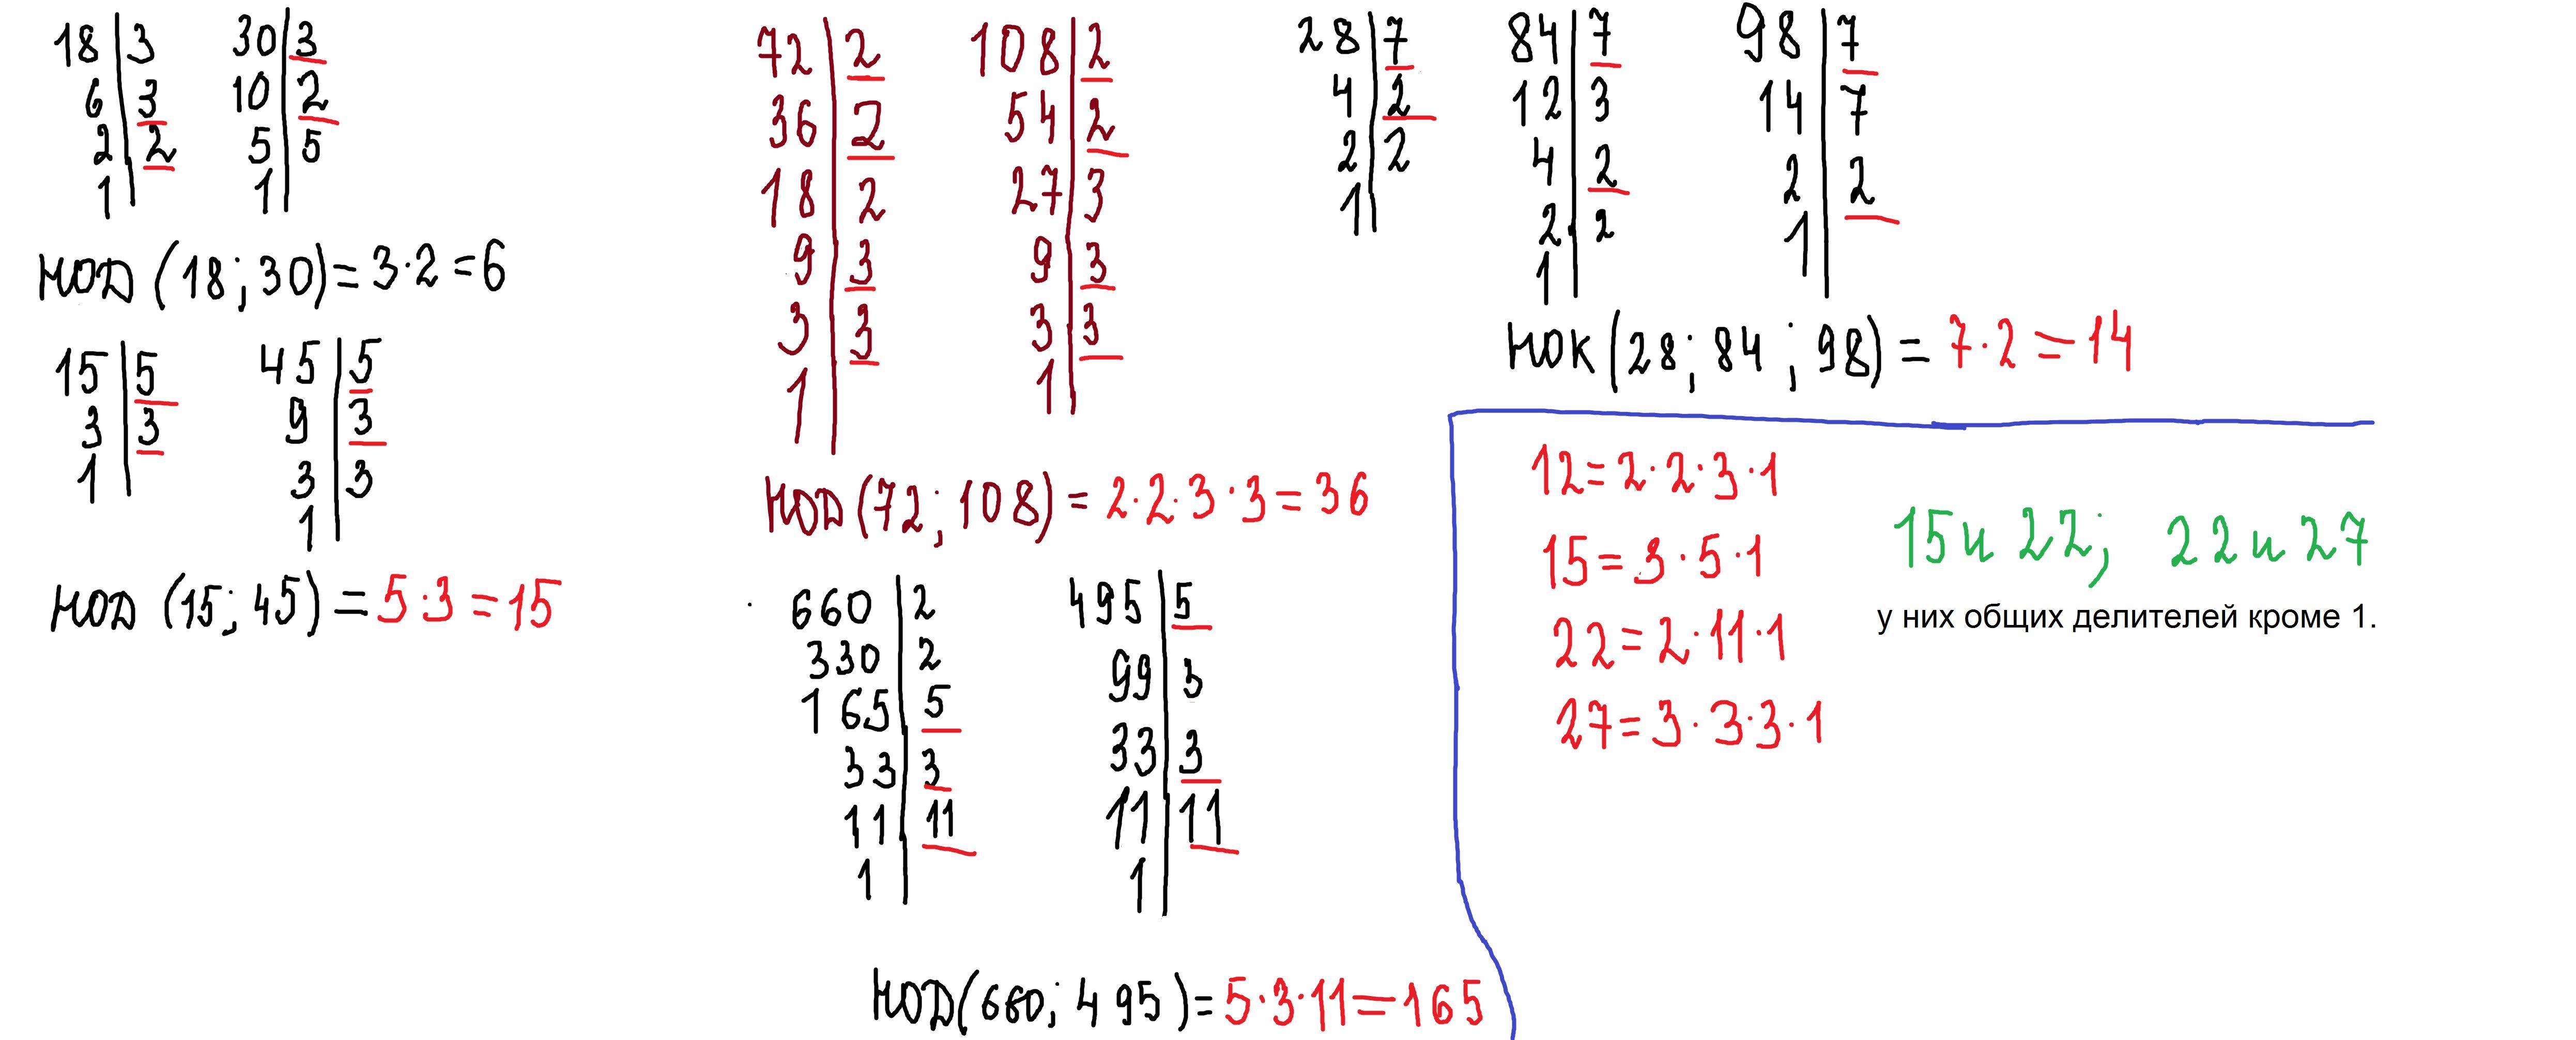 18 3
6 3
2 2
1
30 3
10 2
5 5
1
НОД (18; 30) = 3·2 = 6
15 5
3 3
1
45 5
9 3
3 3
1
НОД (15; 45) = 5·3 = 15
72 2
36 2
18 2
9 3
3 3
1
108 2
54 2
27 3
9 3
3 3
1
НОД (72; 108) = 2·2·3·3 = 36
660 2
330 2
165 5
33 3
11 11
1
495 5
99 3
33 3
11 11
1
НОД (660; 495) = 5·3·11 = 165
28 7
4 2
2 2
1
84 7
12 3
4 2
2 2
1
98 7
14 7
2 2
1
НОК (28; 84; 98) = 7·2 = 14
12 = 2·2·3·1
15 = 3·5·1
22 = 2·11·1
27 = 3·3·3·1
15 и 22; 22 и 27
у них общих делителей кроме 1.